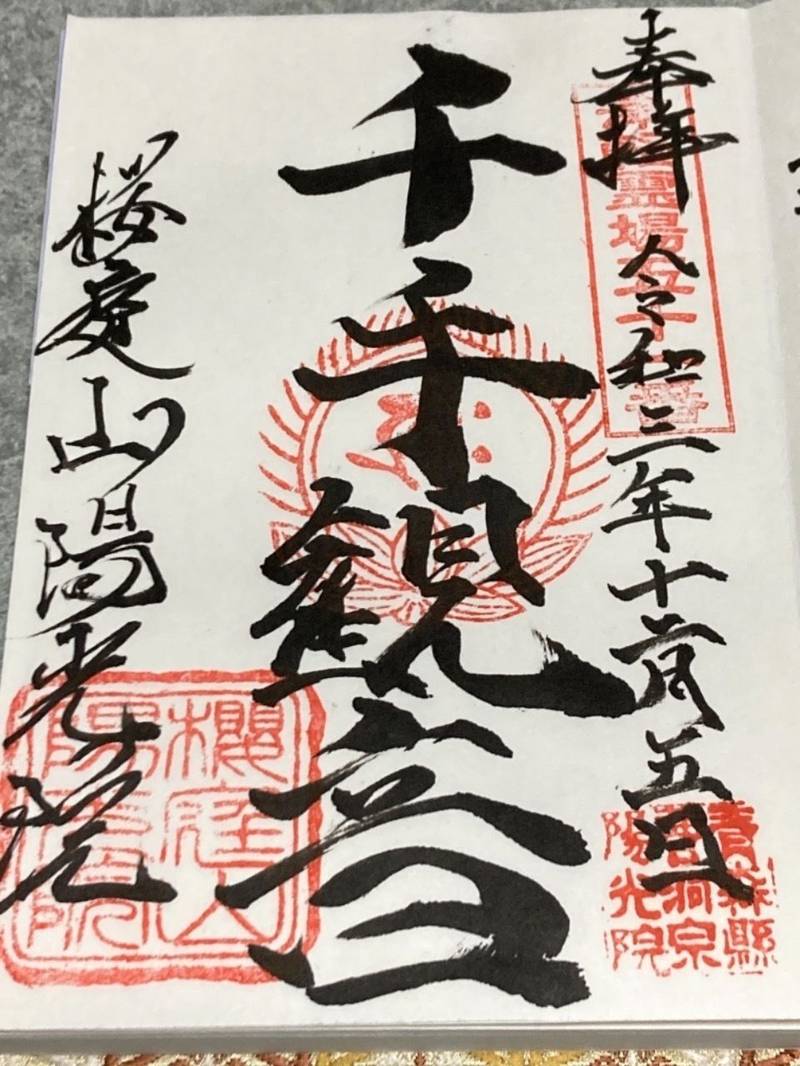 奉拝 令和三年十 月五日
千手觀音
桜庭山 陽光院
靈場
櫻庭山
陽光院
青森縣
曹洞宗
陽光院